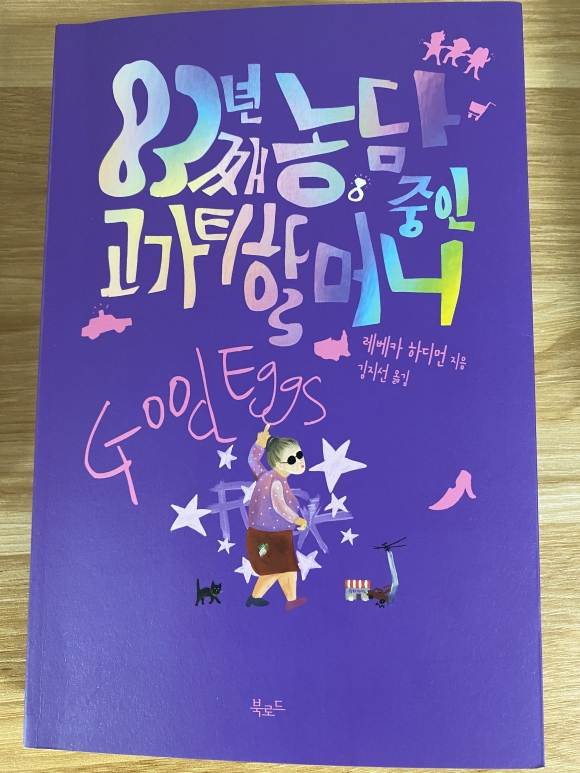 83년째 농담 중인
고가티 할머니
레베카 하디먼 지음
김지선 옮김
Good Eggs
북로드